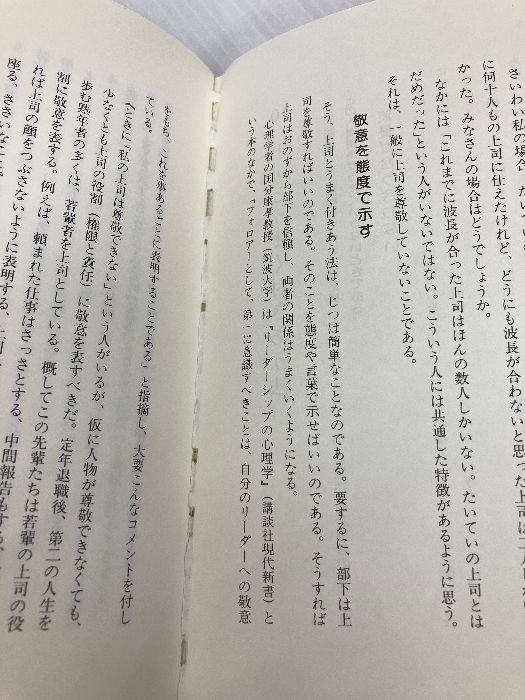 さいわい私の場合
に何十人もの上司に仕えたけれど、どうにも波長が合わないと思った上司は
かった。みなさんの場合はどうでしょうか。
なかには「これまでに波長が合った上司はほんの数人しかいない。たいていの上司とは
だめだった」という人がいないではない。こういう人には共通した特徴があるように思う。
それは、一般に上司を尊敬していないことである。
敬意を態度で示す
そう、上司とうまく付きあう法は、じつは簡単なことなのである。要するに、部下は上
司を尊敬すればいいのである。そのことを態度や言葉で示せばいいのである。そうすれば
上司はおのずから部下を信頼し、両者の関係はうまくいくようになる。
心理学者の国分康孝教授（筑波大学）は『リーダーシップの心理学』（講談社現代新書）と
いう本のなかで、「フォロアーとして、第一に意識すべきことは、自分のリーダーへの敬意
をもち、これを事あるごとに表明することである」と指摘し、大要こんなコメントを付し
ている。
〈ときに「私の上司は尊敬できない」という人がいるが、仮に人物が尊敬できなくても、
少なくとも上司の役割（権限と責任）に敬意を表すべきだ。定年退職後、第二の人生を
歩む熟年者の多くは、若輩者を上司としている。概してこの先輩たちは若輩の上司の役
割に敬意を表する。例えば、頼まれた仕事はさっさとする、中間報告もする、
れば上司の顔をつぶさないように表明する、
座る、ささいな